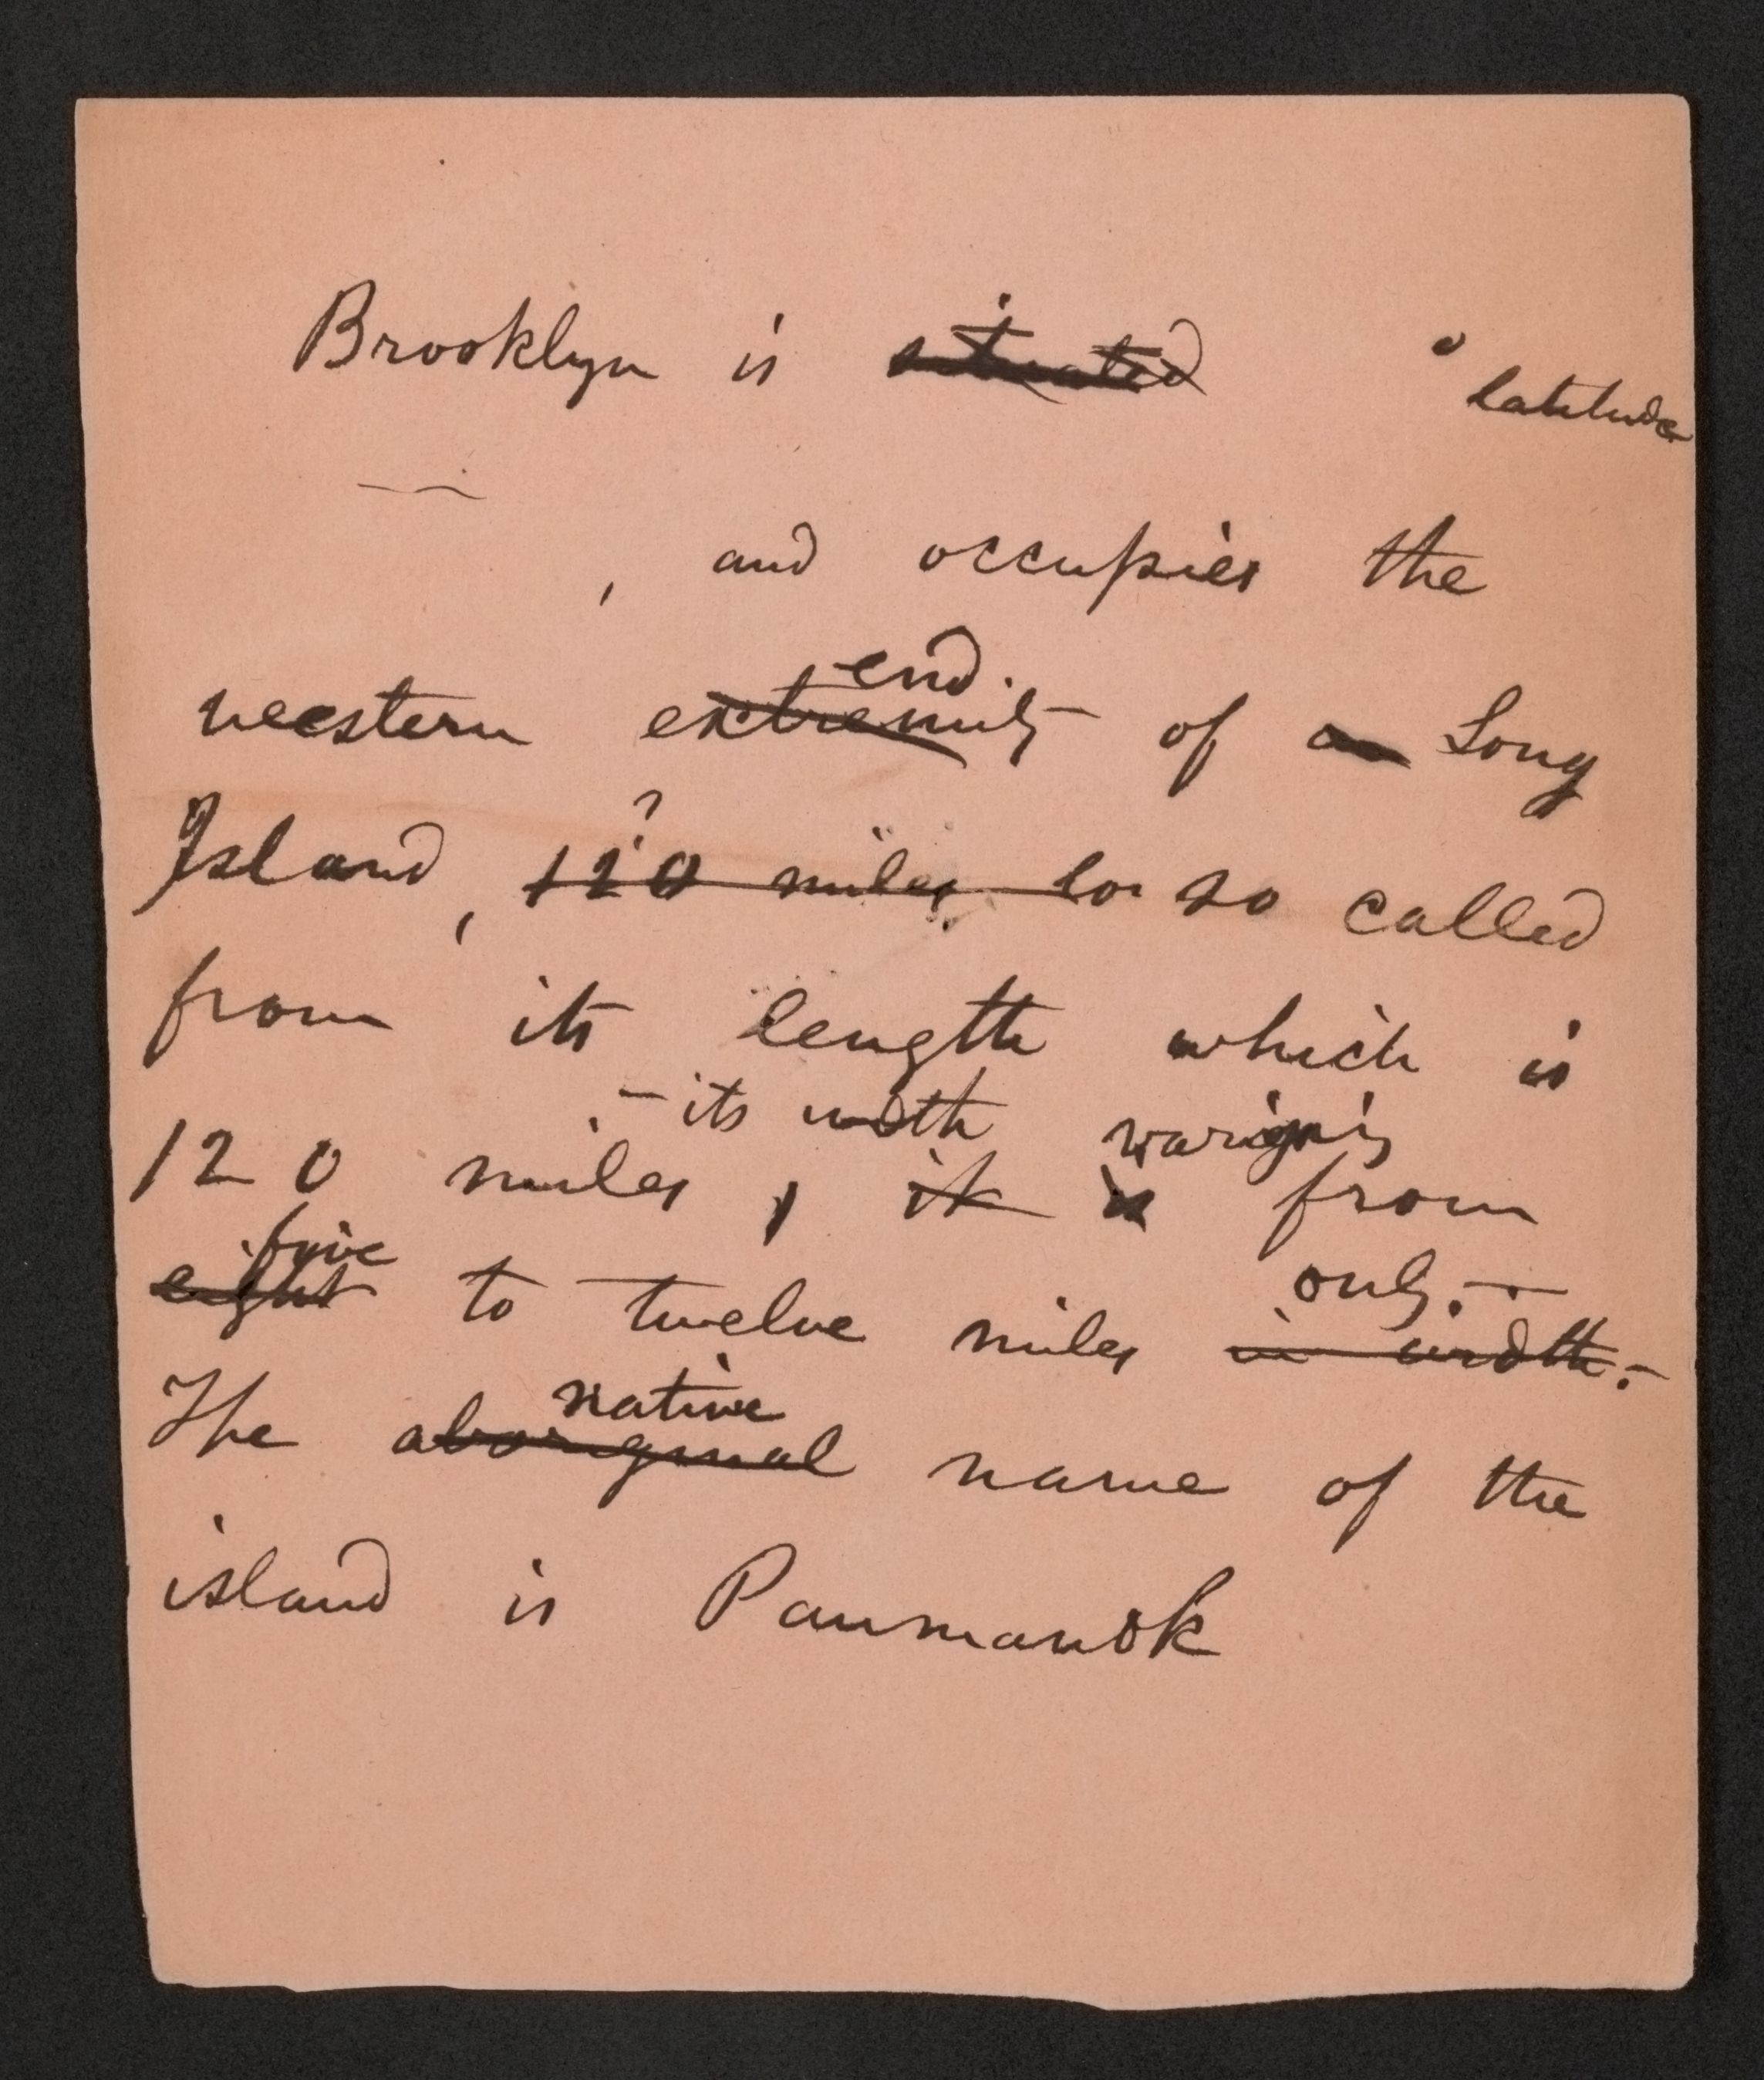 Brooklyn is situated ° latitude
— , and occupies the
end
western extremity of a Long
?
Island, 120 miles lo so called
from its length which is
.— its width varying
120 miles, it is from
five only.—
eight to twelve miles in width.—
native
The aboriginal name of the
island is Paumanok